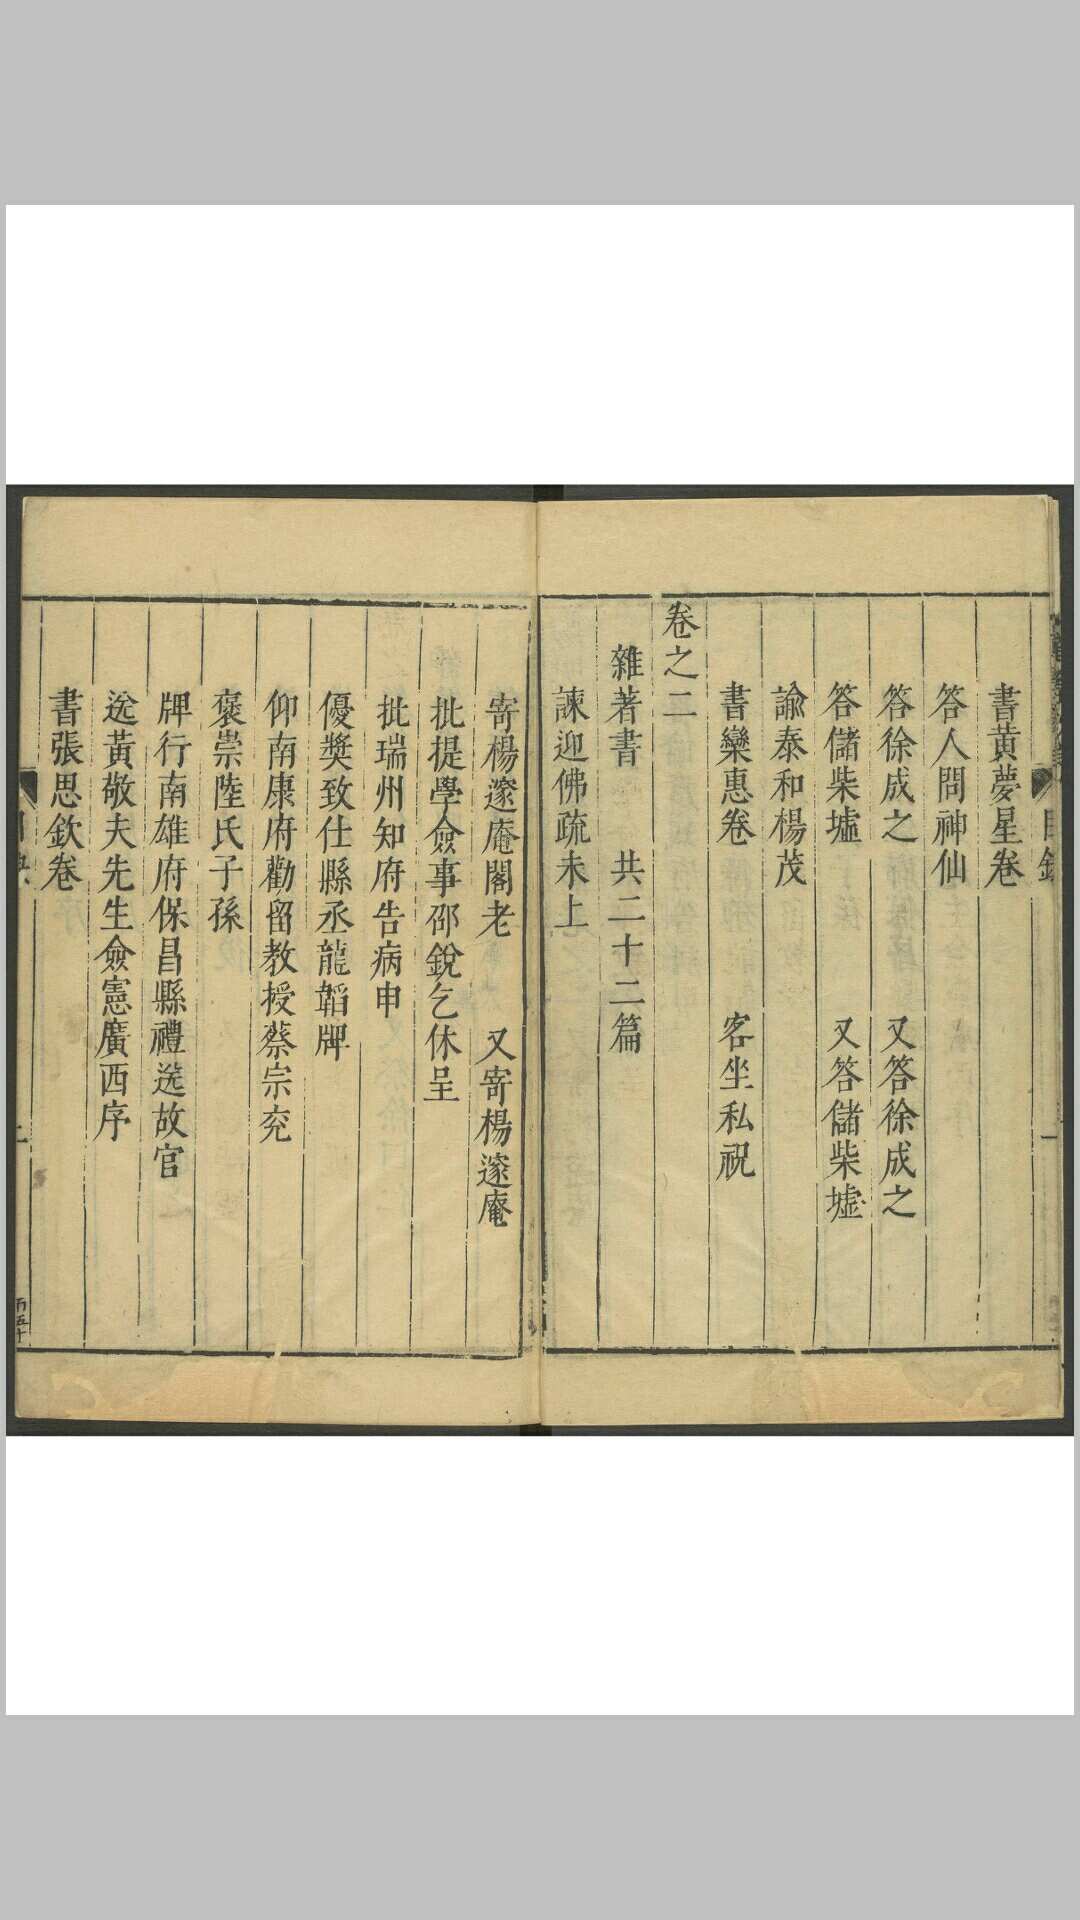 書黃夢星卷
答人問神仙
答徐成之 又答徐成之
答儲柴墟 又答儲柴墟
諭泰和楊茂
書欒惠卷 客坐私祝
卷之二
雜著書 共二十二篇
諫迎佛疏未上
寄楊邃庵閣老 又寄楊邃庵
批提學僉事邵銳乞休呈
批瑞州知府告病申
優獎致仕縣丞龍韜牌
仰南康府勸留教授蔡宗兖
褒崇陸氏子孫
牌行南雄府保昌縣禮送故官
送黃敬夫先生僉憲廣西序
書張思欽卷